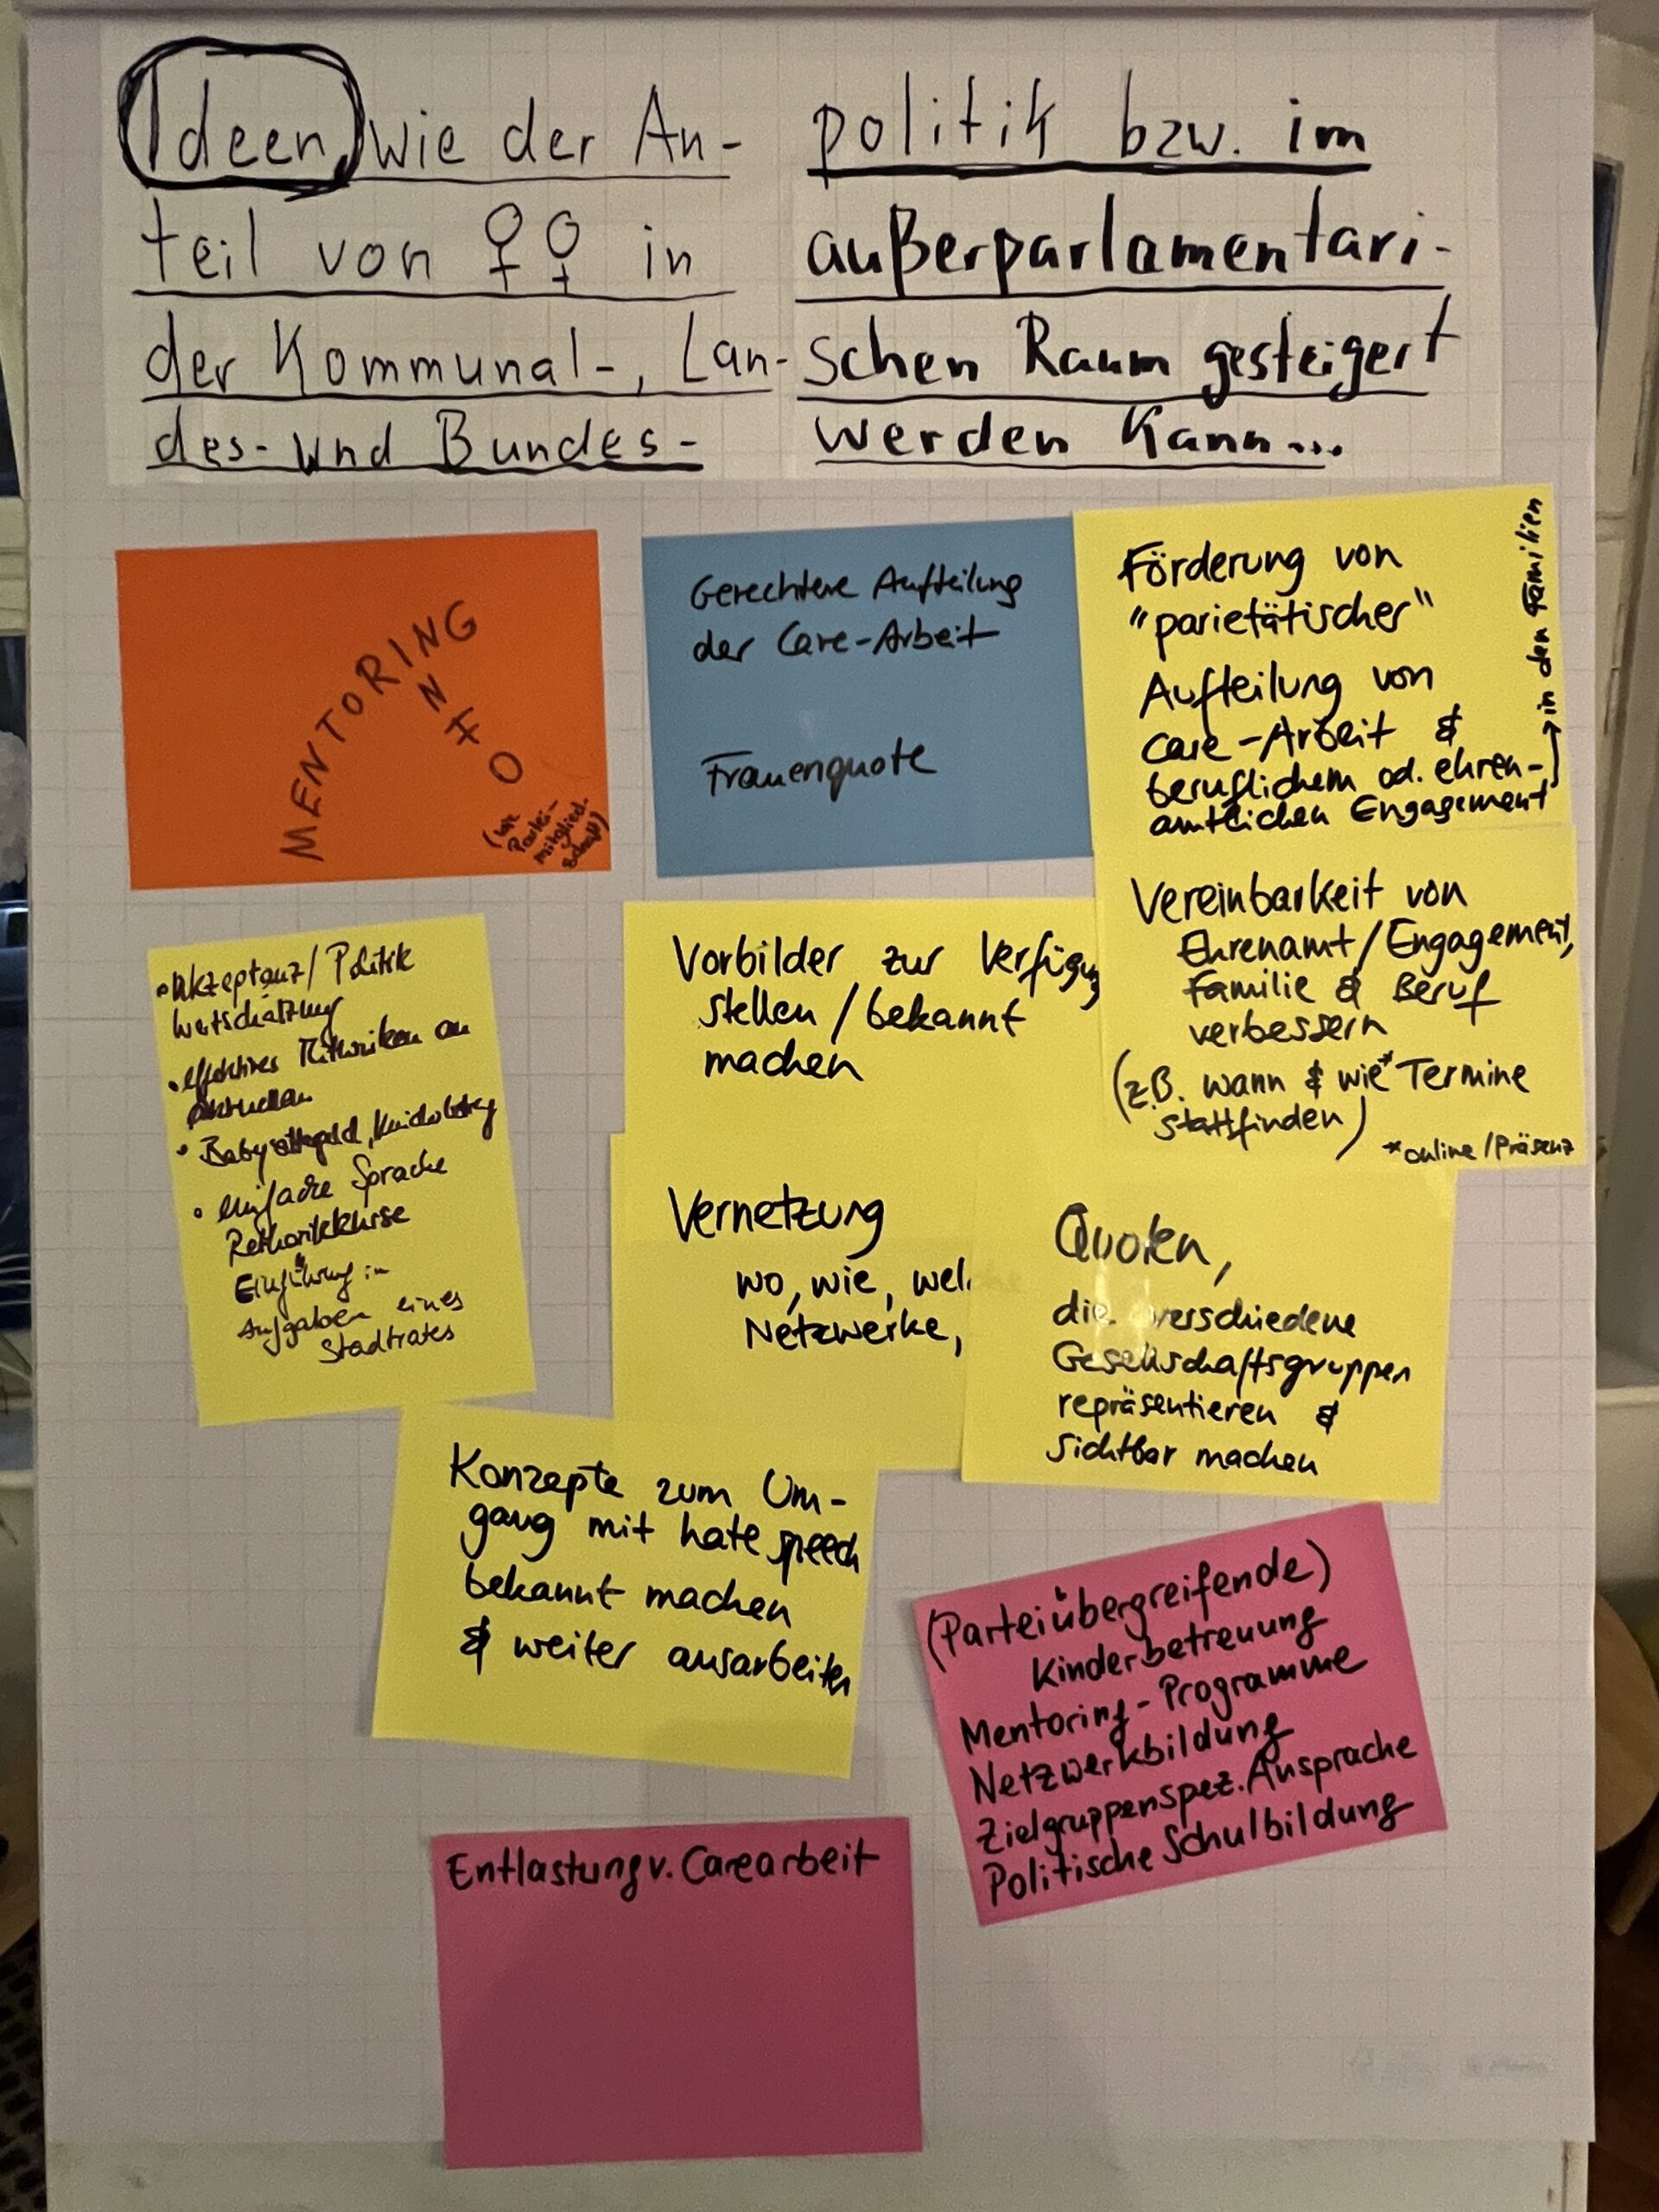 Ideen, wie der An-
teil von ♀♀ in
der Kommunal-, Lan-
des- und Bundes-
politik bzw. im
außerparlamentari-
schen Raum gesteigert
werden kann...
MENTORING
INFO
Partei-
mitglied-
schaft)
Gerechtere Aufteilung
der Care-Arbeit
Frauenquote
Förderung von
"parietätischer"
Aufteilung von
Care-Arbeit &
beruflichem od. ehren-
amtlichen Engagement
in den Familien
• Akzeptanz/ Politik
Wertschätzung
• effektives an
• Babysittergeld,
• einfache Sprache
Rethorikkurse
Einführung in
Aufgaben eines
Stadtrates
Vorbilder zur Verfügung
stellen / bekannt
machen
Vereinbarkeit von
Ehrenamt/Engagement,
Familie & Beruf
verbessern
(z.B. wann & wie* Termine
stattfinden)
*online/Präsenz
Vernetzung
wo, wie, welche
Netzwerke,
Quoten,
die verschiedene
Gesellschaftsgruppen
repräsentieren &
sichtbar machen
Konzepte zum Um-
gang mit hate speech
bekannt machen
& weiter ausarbeiten
(Parteiübergreifende)
Kinderbetreuung
Mentoring-Programme
Netzwerkbildung
Zielgruppenspez. Ansprache
Politische Schulbildung
Entlastung v. Carearbeit